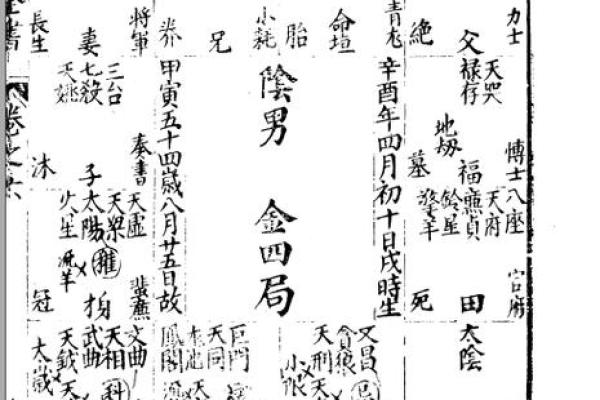 力士
父
絶
青龙
命垣
胎
小耗
兄
养
將軍
妻
長生
天哭
禄存
地刼
博士
福
墓
八座
天府
廉貞
鈴星
擎羊
官府
田
死
太陰
辛酉年四月初十日戌時生
陰男 金四局
甲寅五十四歲八月廿五日故
三台
七殺
天姚
奏書
子
沐
天虛
天梁
太陽權
火星
蜚廉
冠
文昌
貪狼
天刑
小限
巨門
天同
鳳閣
文曲
天相
武曲
科
天鉞
太歲